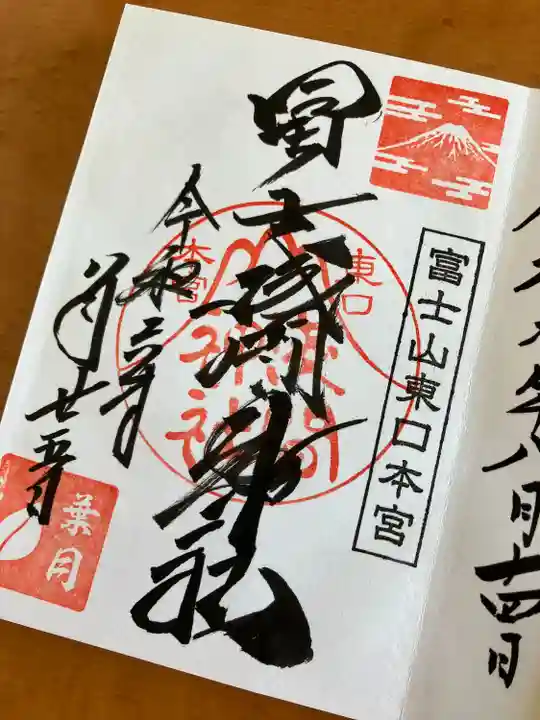 富士山東口本宮
冨士浅間神社
東口
本宮
浅間
神社
令和六年
八月廿五日
葉月
年八月十四日